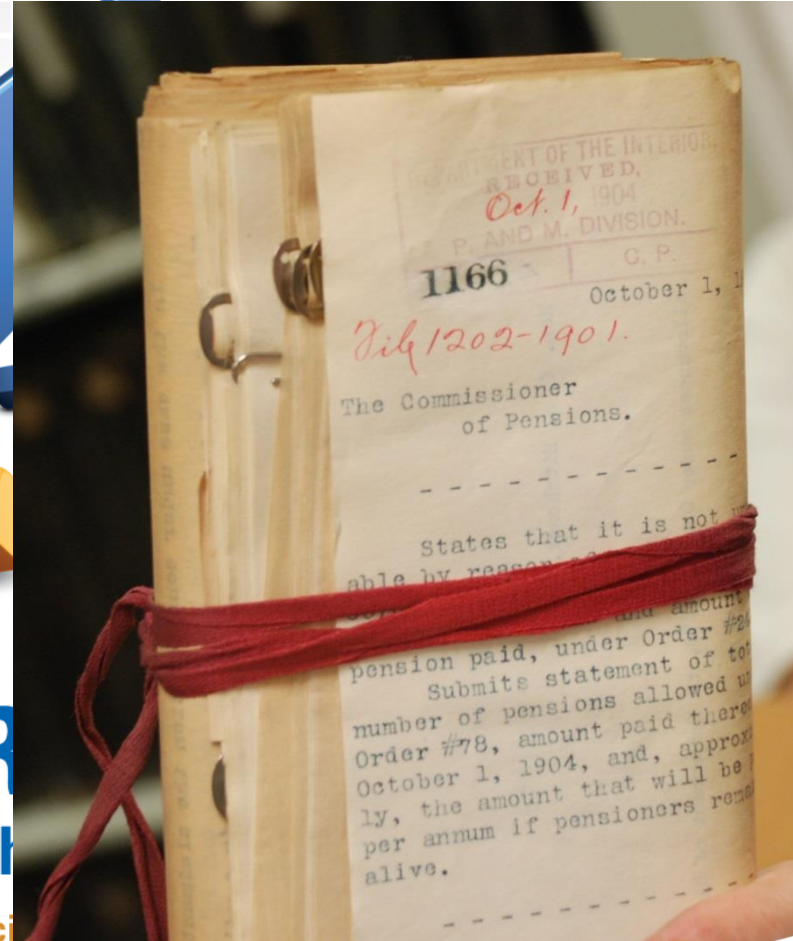 DEPARTMENT OF THE INTERIOR,
RECEIVED,
Oct. 1, 1904
P. AND M. DIVISION.
C. P.
1166
October 1, 1
File 1202-1901.
The Commissioner
of Pensions.
- - - - - - - - - - - -
States that it is not
able by reason
and amount
pension paid, under Order #
Submits statement of
number of pensions allowed
Order #78, amount paid
October 1, 1904, and,
ly, the amount that will be
per annum if pensioners
alive.
- - - - - - - - - - -